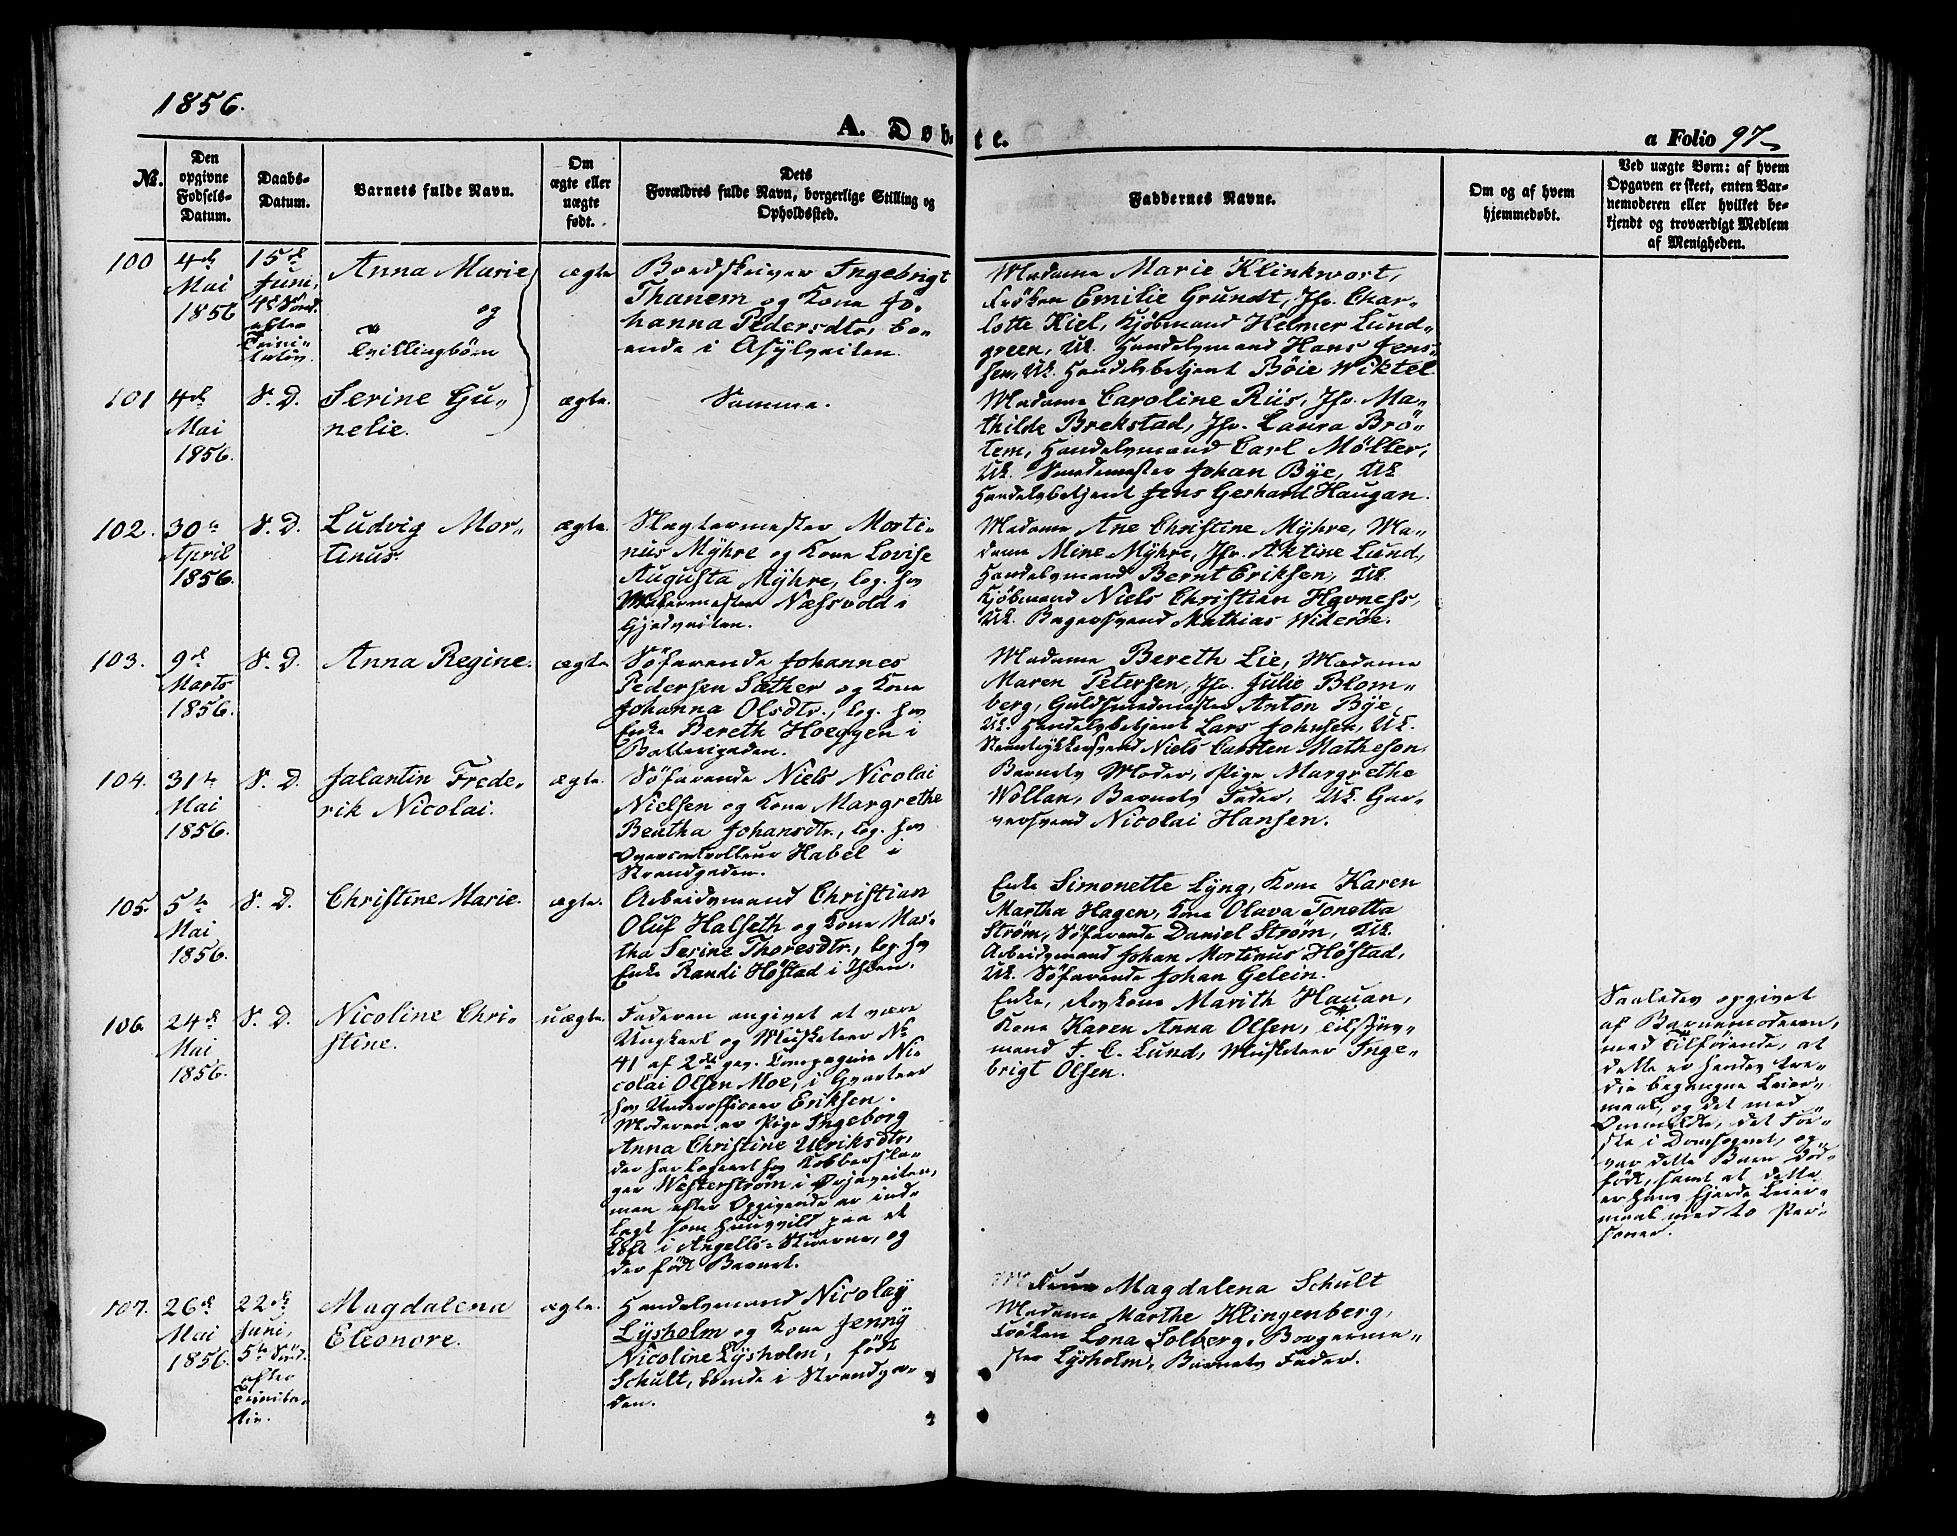 1856.
A. Døbte.
a Folio 97
No.
Den opgivne Fødsels-Datum.
Daabs-Datum.
Barnets fulde Navn.
Om ægte eller uægte født.
Dets Forældres fulde Navn, borgerlige Stilling og Opholdssted.
Faddernes Navne.
Om og af hvem hjemmedøbt.
Ved uægte Børn: af hvem Opgaven er skeet, enten Barnemoderen eller hvilket bekjendt og troværdigt Medlem af Menigheden.
100
4de
Mai
1856
15de
Juni,
4de Sønd.
efter
Trini-
tatis.
Anna Marie
og
Tvillingbørn
ægte
Bordskriver Ingebrigt
Thanem og Kone Jo-
hanna Pedersdtr, bo-
ende i Asylveiten.
Madame Marie Klinkwort,
Frøken Emilie Grundt, Jfr. Char-
lotte Kiel, Kjøbmand Helmer Lund-
green, Uk. Handelsmand Hans Jens-
sen, Uk. Handelsbetjent Böie Wiktel.
101
4de
Mai
1856.
S. D.
Serine Gu-
nelie.
ægte.
Samme.
Madame Caroline Riis, Jfr. Ma-
thilde Brekstad, Jfr. Laura Brö-
tem, Handelsmand Carl Möller,
Uk. Smedemester Johan Bye, Uk
Handelsbetjent Jens Gerhard Haugan.
102.
30te
April
1856.
S. D.
Ludvig Mor-
tinus.
ægte.
Slagtermester Morti-
nus Myhre og Kone Lovise
Augusta Myhre, log. hos
Malermester Næssvold i
Gjedveiten.
Madame Ane Christine Myhre, Ma-
dame Mine Myhre, Jfr. Aktine Lund,
Handelsmand Bernt Eriksen, Uk.
Kjøbmand Niels Christian Havness,
Uk. Bagersvend Mathias Wideröe.
103.
9de
Marts
1856.
S. D.
Anna Regine.
ægte
Söfarende Johannes
Pedersen Sæther og Kone
Johanna Olsdtr., log. hos
Enke Bereth Hoeggen i
Batterigaden.
Madame Bereth Lie, Madame
Maren Petersen, Jfr. Julie Blom-
berg, Guldsmedmester Anton Bye,
Uk. Handelsbetjent Lars Johnsen, Uk.
Niels Carsten Matheson.
104.
31te
Mai
1856.
S. D.
Jalantin Frede-
rik Nicolai.
ægte.
Söfarende Niels Nicolai
Nielsen og Kone Margrethe
Beatha Johansdtr., log. hos
Overcontrolleur Habel i
Strandgaden.
Barnets Moder, Pige Margrethe
Wollan, Barnets Fader, Uk. Gar-
versvend Nicolai Hansen.
105.
5te
Mai
1856.
S. D.
Christine Marie.
ægte.
Arbeidsmand Christian
Oluf Halseth og Kone Mar-
tha Serine Thoresdtr., log. hos
Enke Randi Höstad i Ihlen.
Enke Simonette Lyng, Kone Karen
Martha Hagen, Kone Olava Tonetta
Ström, Söfarende Daniel Ström, Uk.
Arbeidsmand Johan Mortinus Höstad,
Uk. Söfarende Johan Gelein.
106.
24de
Mai
1856.
S. D.
Nicoline Chri-
stine.
uægte.
Faderen angivet at være
Ungkarl og Musketeer No
41 af 2det gev. Compagnie Ni-
colai Olsen Moe, i Qvarteer
hos Underofficeer Eriksen.
Moderen er Pige Ingeborg
Anna Christine Ulriksdtr,
der har logeret hos Kobbersla-
ger Westerström i Örjaveiten,
men efter Opgivende er ind-
lagt som huusvild paa et
Loft i Angells-Stuerne, og
der født Barnet.
Enke, Marith Hauan,
Kone Karen Anna Olsen, Tilsyns-
mand J. C. Lund, Musketeer Inge-
brigt Olsen.
Saaledes opgivet
af Barnemoderen,
med Tilføiende, at
dette er hendes tre-
die begangne Leier-
maal, og det med
Ommeldte, det För-
ste i Domsognet, og
var dette Barn død-
født, samt at dette
er hans fjerde Leier-
maal med to Per-
soner.
107.
26de
Mai
1856.
22de
Juni,
5te Sönd.
efter
Trinita-
tis.
Magdalena
Eleonore.
ægte.
Handelsmand Nicolay
Lysholm og Kone Jenny
Nicoline Lysholm, født
Schult, boende i Strandga-
den.
Frue Magdalena Schult
Madame Marthe Klingenberg,
Frøken Lona Solberg, Borgerme-
ster Lysholm, Barnets Fader.